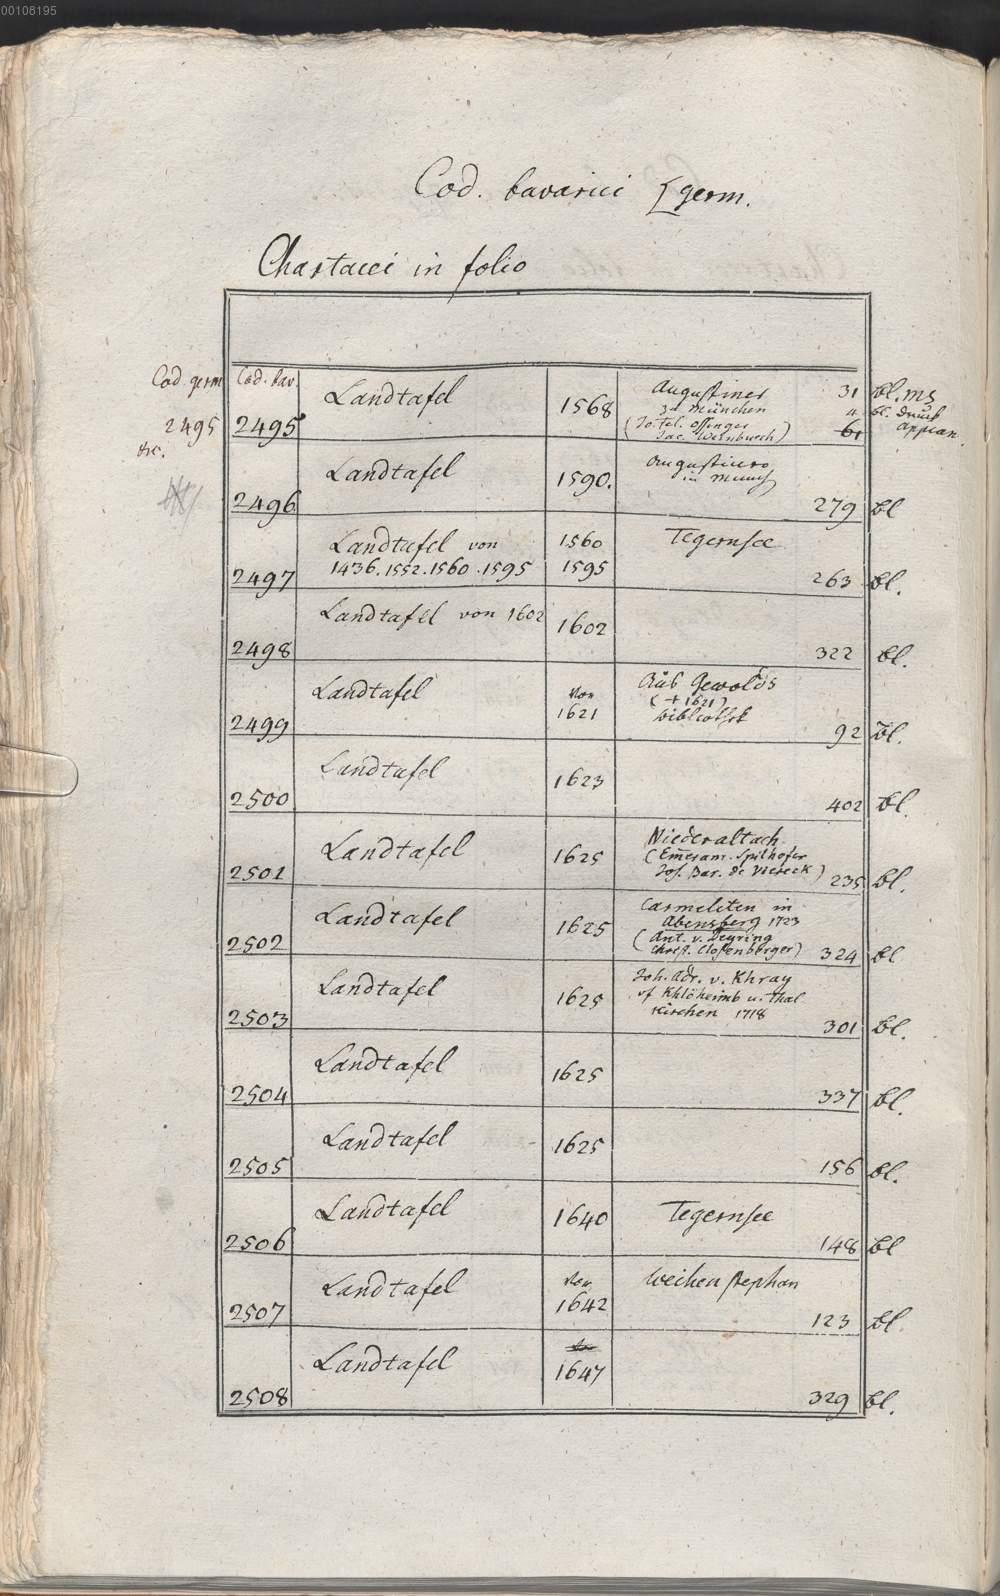 00108195
Cod. bavarici [germ.
Chartacei in folio
Cod. germ Cod. bav.
2495 2495 Landtafel 1568 Augustiner 31 bl. ms
etc. zu München bl. Druck
(Jo. Fel. Offinger 61 appian.
Jac. Wernbuech)
2496 Landtafel 1590. Augustiner
in Münch 279 bl
2497 Landtafel von 1560 Tegernsee
1436. 1552. 1560. 1595 1595 263 bl.
2498 Landtafel von 1602 1602 322 bl.
2499 Landtafel Vor Aus Gewolds
1621 (+ 1621)
bibliothek 92 bl.
2500 Landtafel 1623 402 bl.
2501 Landtafel 1625 Niederaltach.
(Emeram. Spilhofer
Jos. Bar. de Viereck) 235 bl.
2502 Landtafel 1625 Carmeliten in
Abensberg 1723
(Ant. v. Deyring
Christ. Closenberger) 324 bl
2503 Landtafel 1625 Joh. Adr. v. Khray
uf Khlöheimb u. Thal
kirchen 1718 301 bl.
2504 Landtafel 1625 337 bl.
2505 Landtafel 1625 156 bl.
2506 Landtafel 1640 Tegernsee 148 bl
2507 Landtafel Vor Weihenstephan
1642 123 bl.
2508 Landtafel 1647 329 bl.